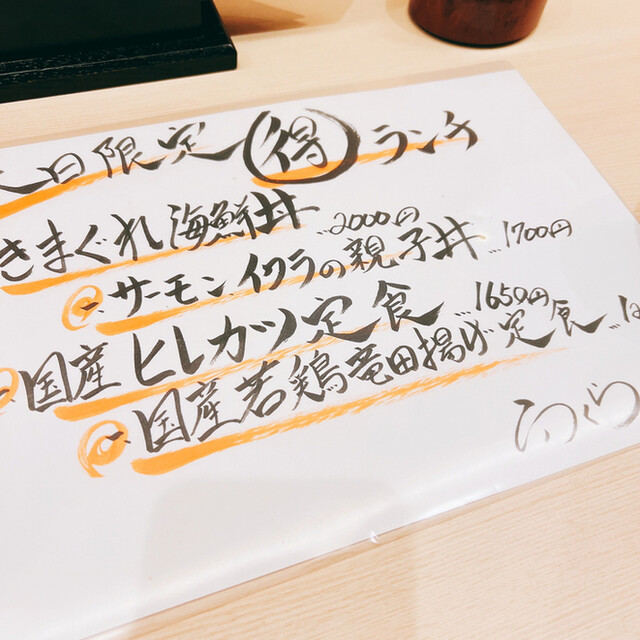 日限定 得 ランチ
きまぐれ海鮮丼 …2000円
一、サーモンイクラの親子丼 …1700円
国産ヒレカツ定食 …1650円
一、国産若鶏竜田揚げ定食 …